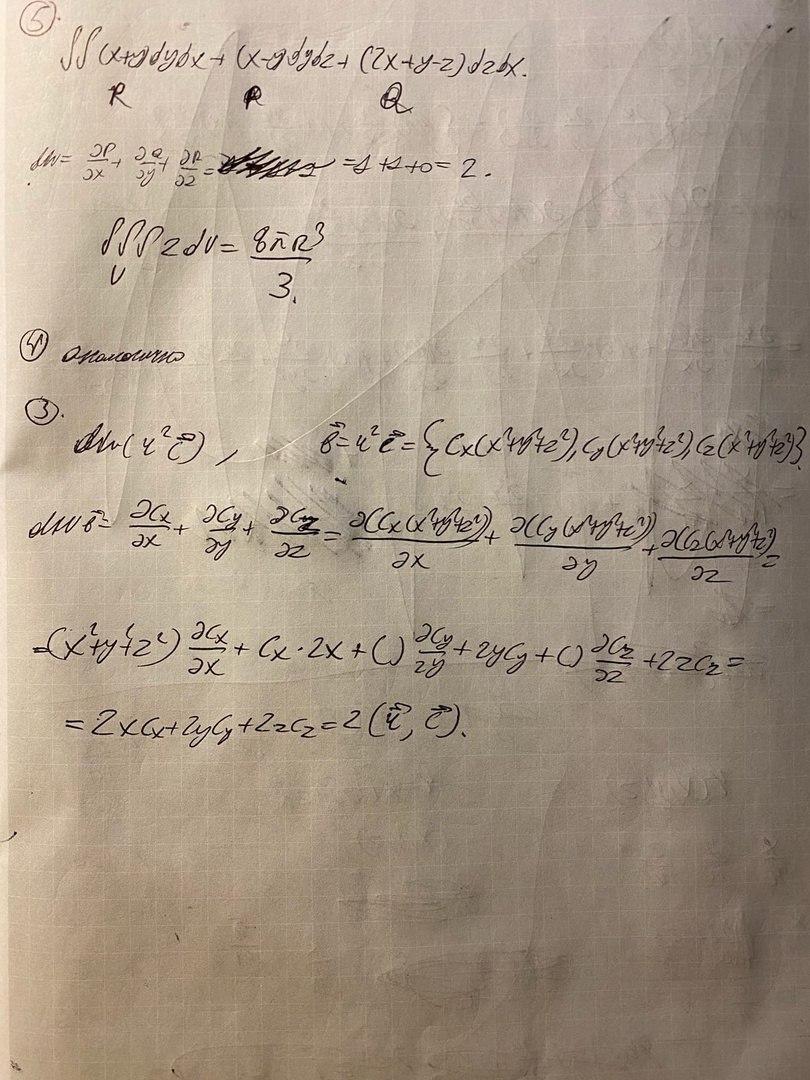 5
∬ (x+y)dydx + (x-y)dydz + (2x+y-z)dzdx.
R P Q
div = ∂P/∂x + ∂Q/∂y + ∂R/∂z = = 1+1+0 = 2.
∭ 2 dV = 8πR³/3.
V
4 аналогично
3.
div(r² c⃗), b⃗ = r² c⃗ = {Cx(x²+y²+z²), Cy(x²+y²+z²), Cz(x²+y²+z²)}
div b⃗ = ∂Cx/∂x + ∂Cy/∂y + ∂Cz/∂z = ∂(Cx(x²+y²+z²))/∂x + ∂(Cy(x²+y²+z²))/∂y + ∂(Cz(x²+y²+z²))/∂z =
= (x²+y²+z²) ∂Cx/∂x + Cx · 2x + ( ) ∂Cy/∂y + 2yCy + ( ) ∂Cz/∂z + 2zCz =
= 2xCx + 2yCy + 2zCz = 2(r⃗, c⃗).